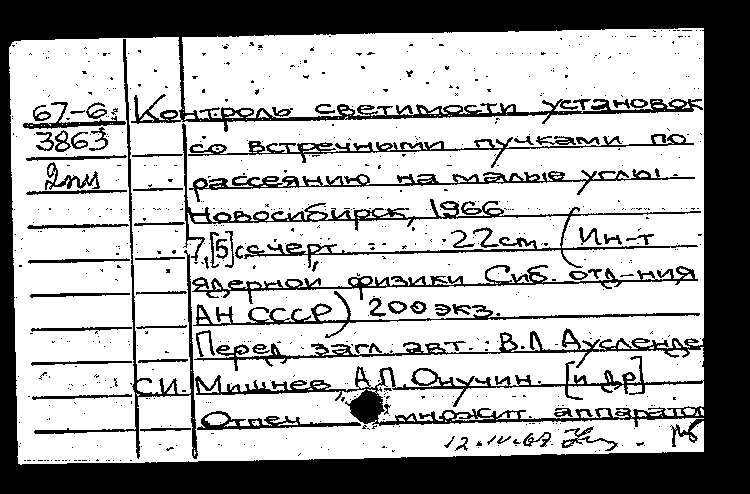 67-6 Контроль светимости установок
3863 со встречными пучками по
2пм рассеянию на малые углы.
Новосибирск, 1966
7,[5] с. с черт. 22 cm. (Ин-т
ядерной физики Сиб. отд-ния
АН СССР) 200 экз.
Перед загл. авт.: В.Л. Аусленде
С.И. Мишнев, А.П. Онучин. [и др]
Отпеч. множит. аппарато
12.IV.67